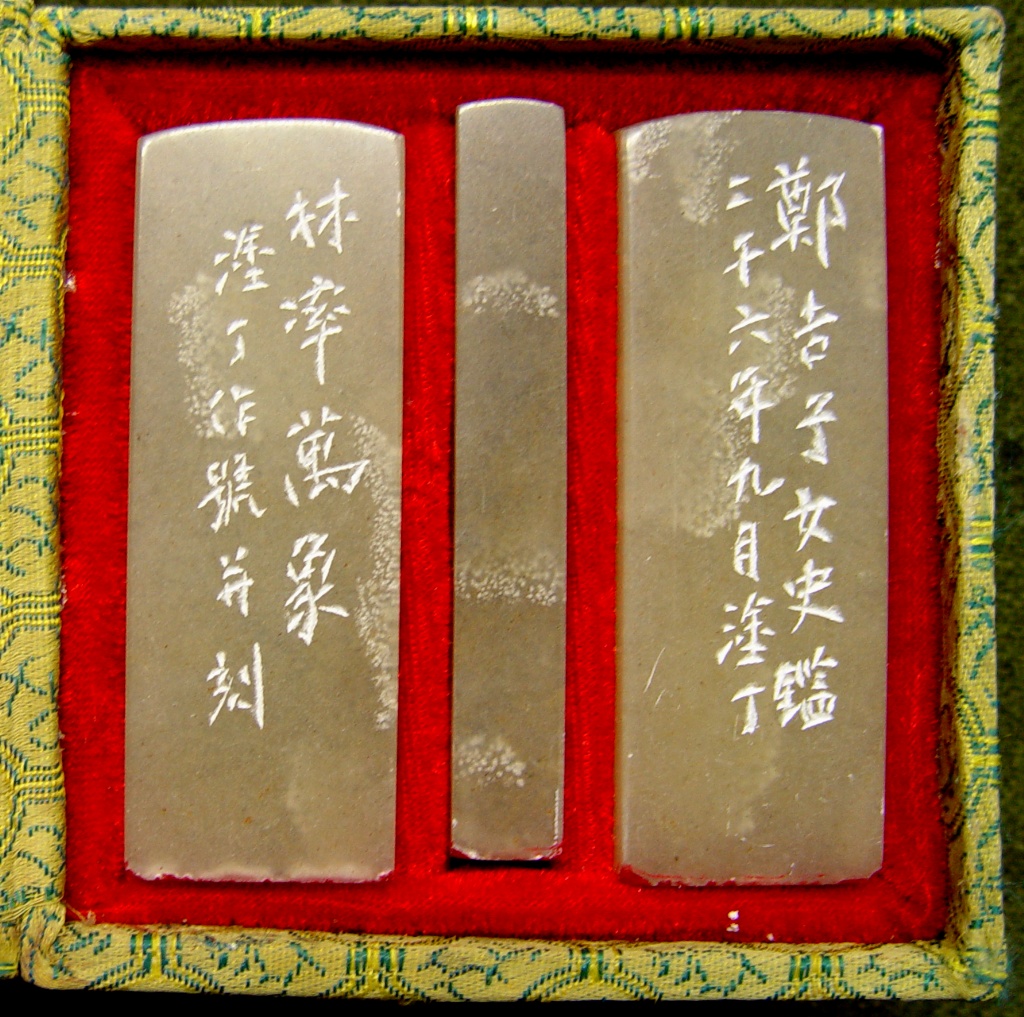 鄭吉子女史鑑
二千六年九月塗丁
林率萬象
塗丁作號并刻